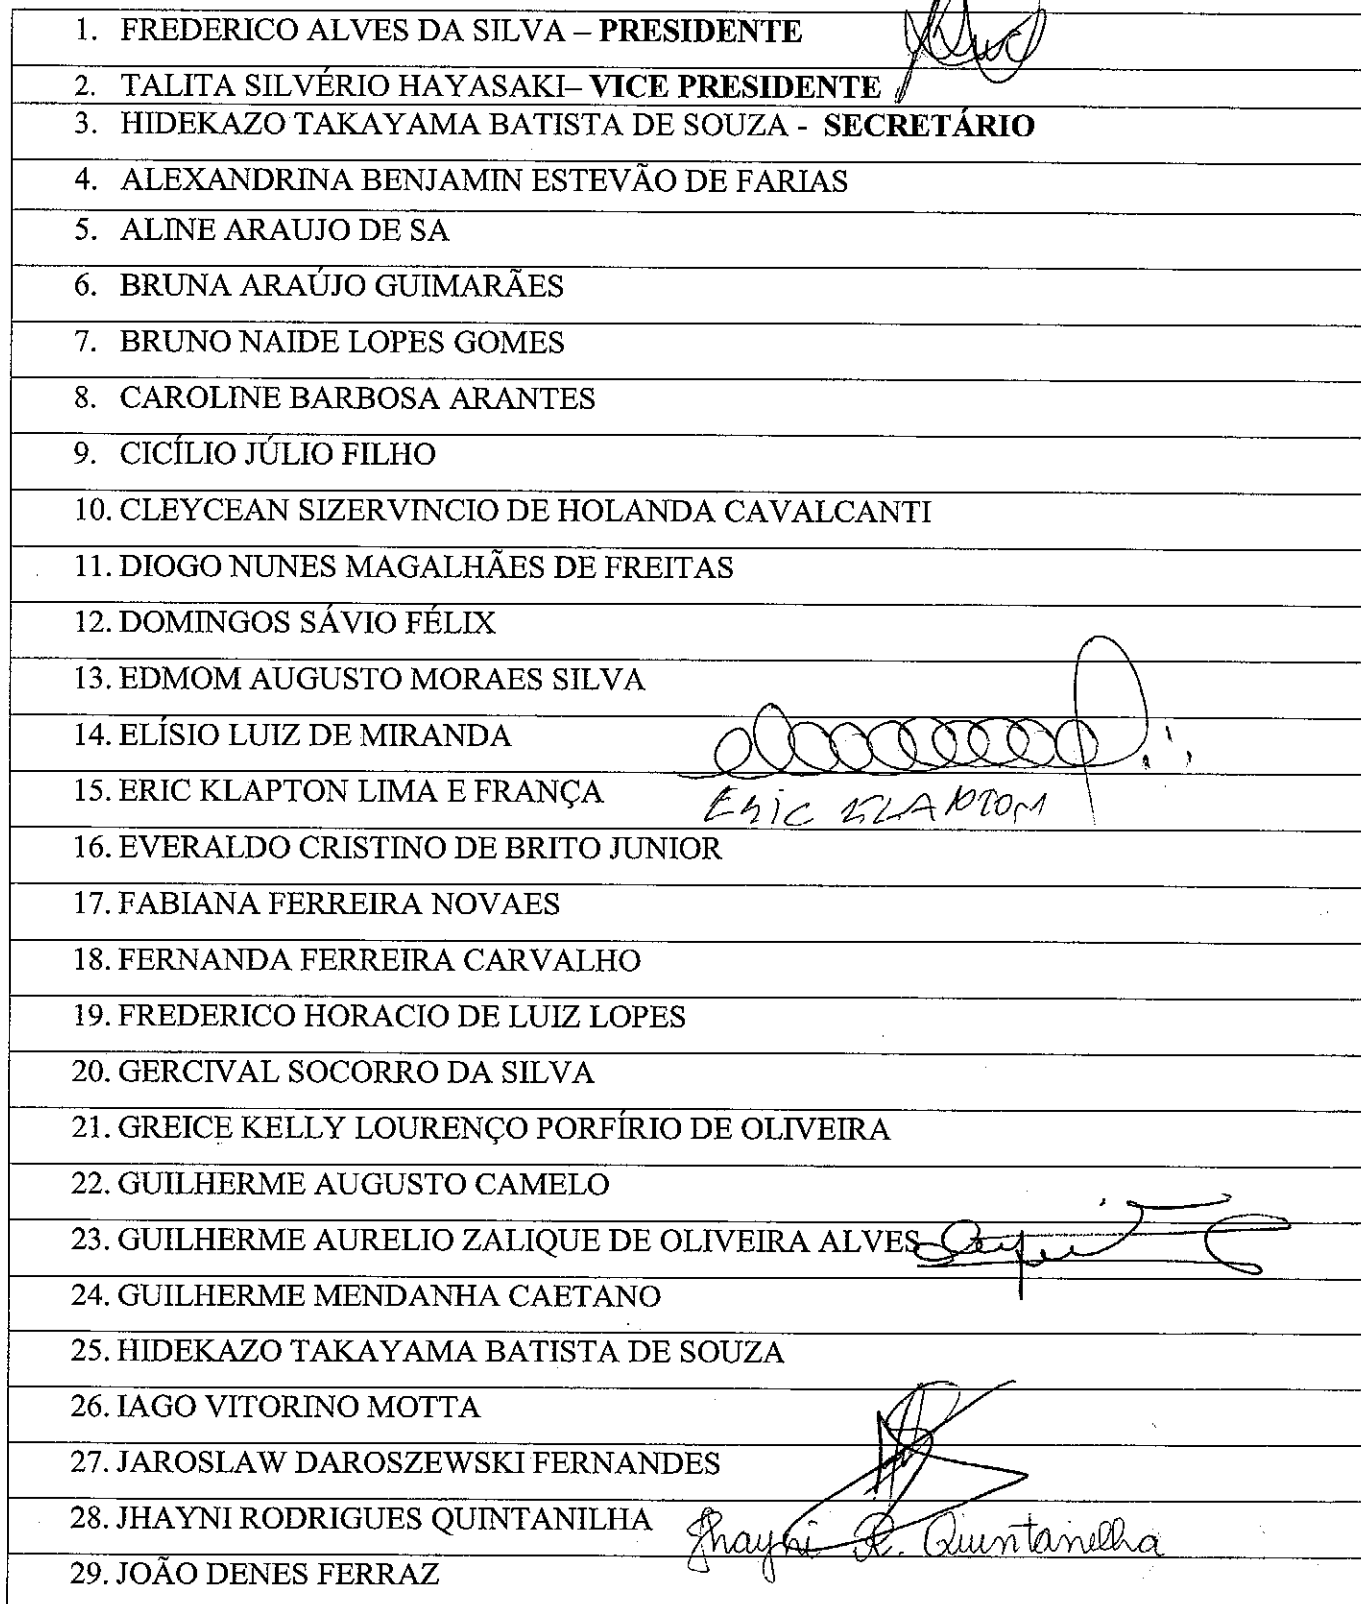 1. FREDERICO ALVES DA SILVA – PRESIDENTE
2. TALITA SILVÉRIO HAYASAKI– VICE PRESIDENTE
3. HIDEKAZO TAKAYAMA BATISTA DE SOUZA - SECRETÁRIO
4. ALEXANDRINA BENJAMIN ESTEVÃO DE FARIAS
5. ALINE ARAUJO DE SA
6. BRUNA ARAÚJO GUIMARÃES
7. BRUNO NAIDE LOPES GOMES
8. CAROLINE BARBOSA ARANTES
9. CICÍLIO JÚLIO FILHO
10. CLEYCEAN SIZERVINCIO DE HOLANDA CAVALCANTI
11. DIOGO NUNES MAGALHÃES DE FREITAS
12. DOMINGOS SÁVIO FÉLIX
13. EDMOM AUGUSTO MORAES SILVA
14. ELÍSIO LUIZ DE MIRANDA
15. ERIC KLAPTON LIMA E FRANÇA Eric KLAPTOM
16. EVERALDO CRISTINO DE BRITO JUNIOR
17. FABIANA FERREIRA NOVAES
18. FERNANDA FERREIRA CARVALHO
19. FREDERICO HORACIO DE LUIZ LOPES
20. GERCIVAL SOCORRO DA SILVA
21. GREICE KELLY LOURENÇO PORFÍRIO DE OLIVEIRA
22. GUILHERME AUGUSTO CAMELO
23. GUILHERME AURELIO ZALIQUE DE OLIVEIRA ALVES
24. GUILHERME MENDANHA CAETANO
25. HIDEKAZO TAKAYAMA BATISTA DE SOUZA
26. IAGO VITORINO MOTTA
27. JAROSLAW DAROSZEWSKI FERNANDES
28. JHAYNI RODRIGUES QUINTANILHA Jhayni R. Quintanilha
29. JOÃO DENES FERRAZ